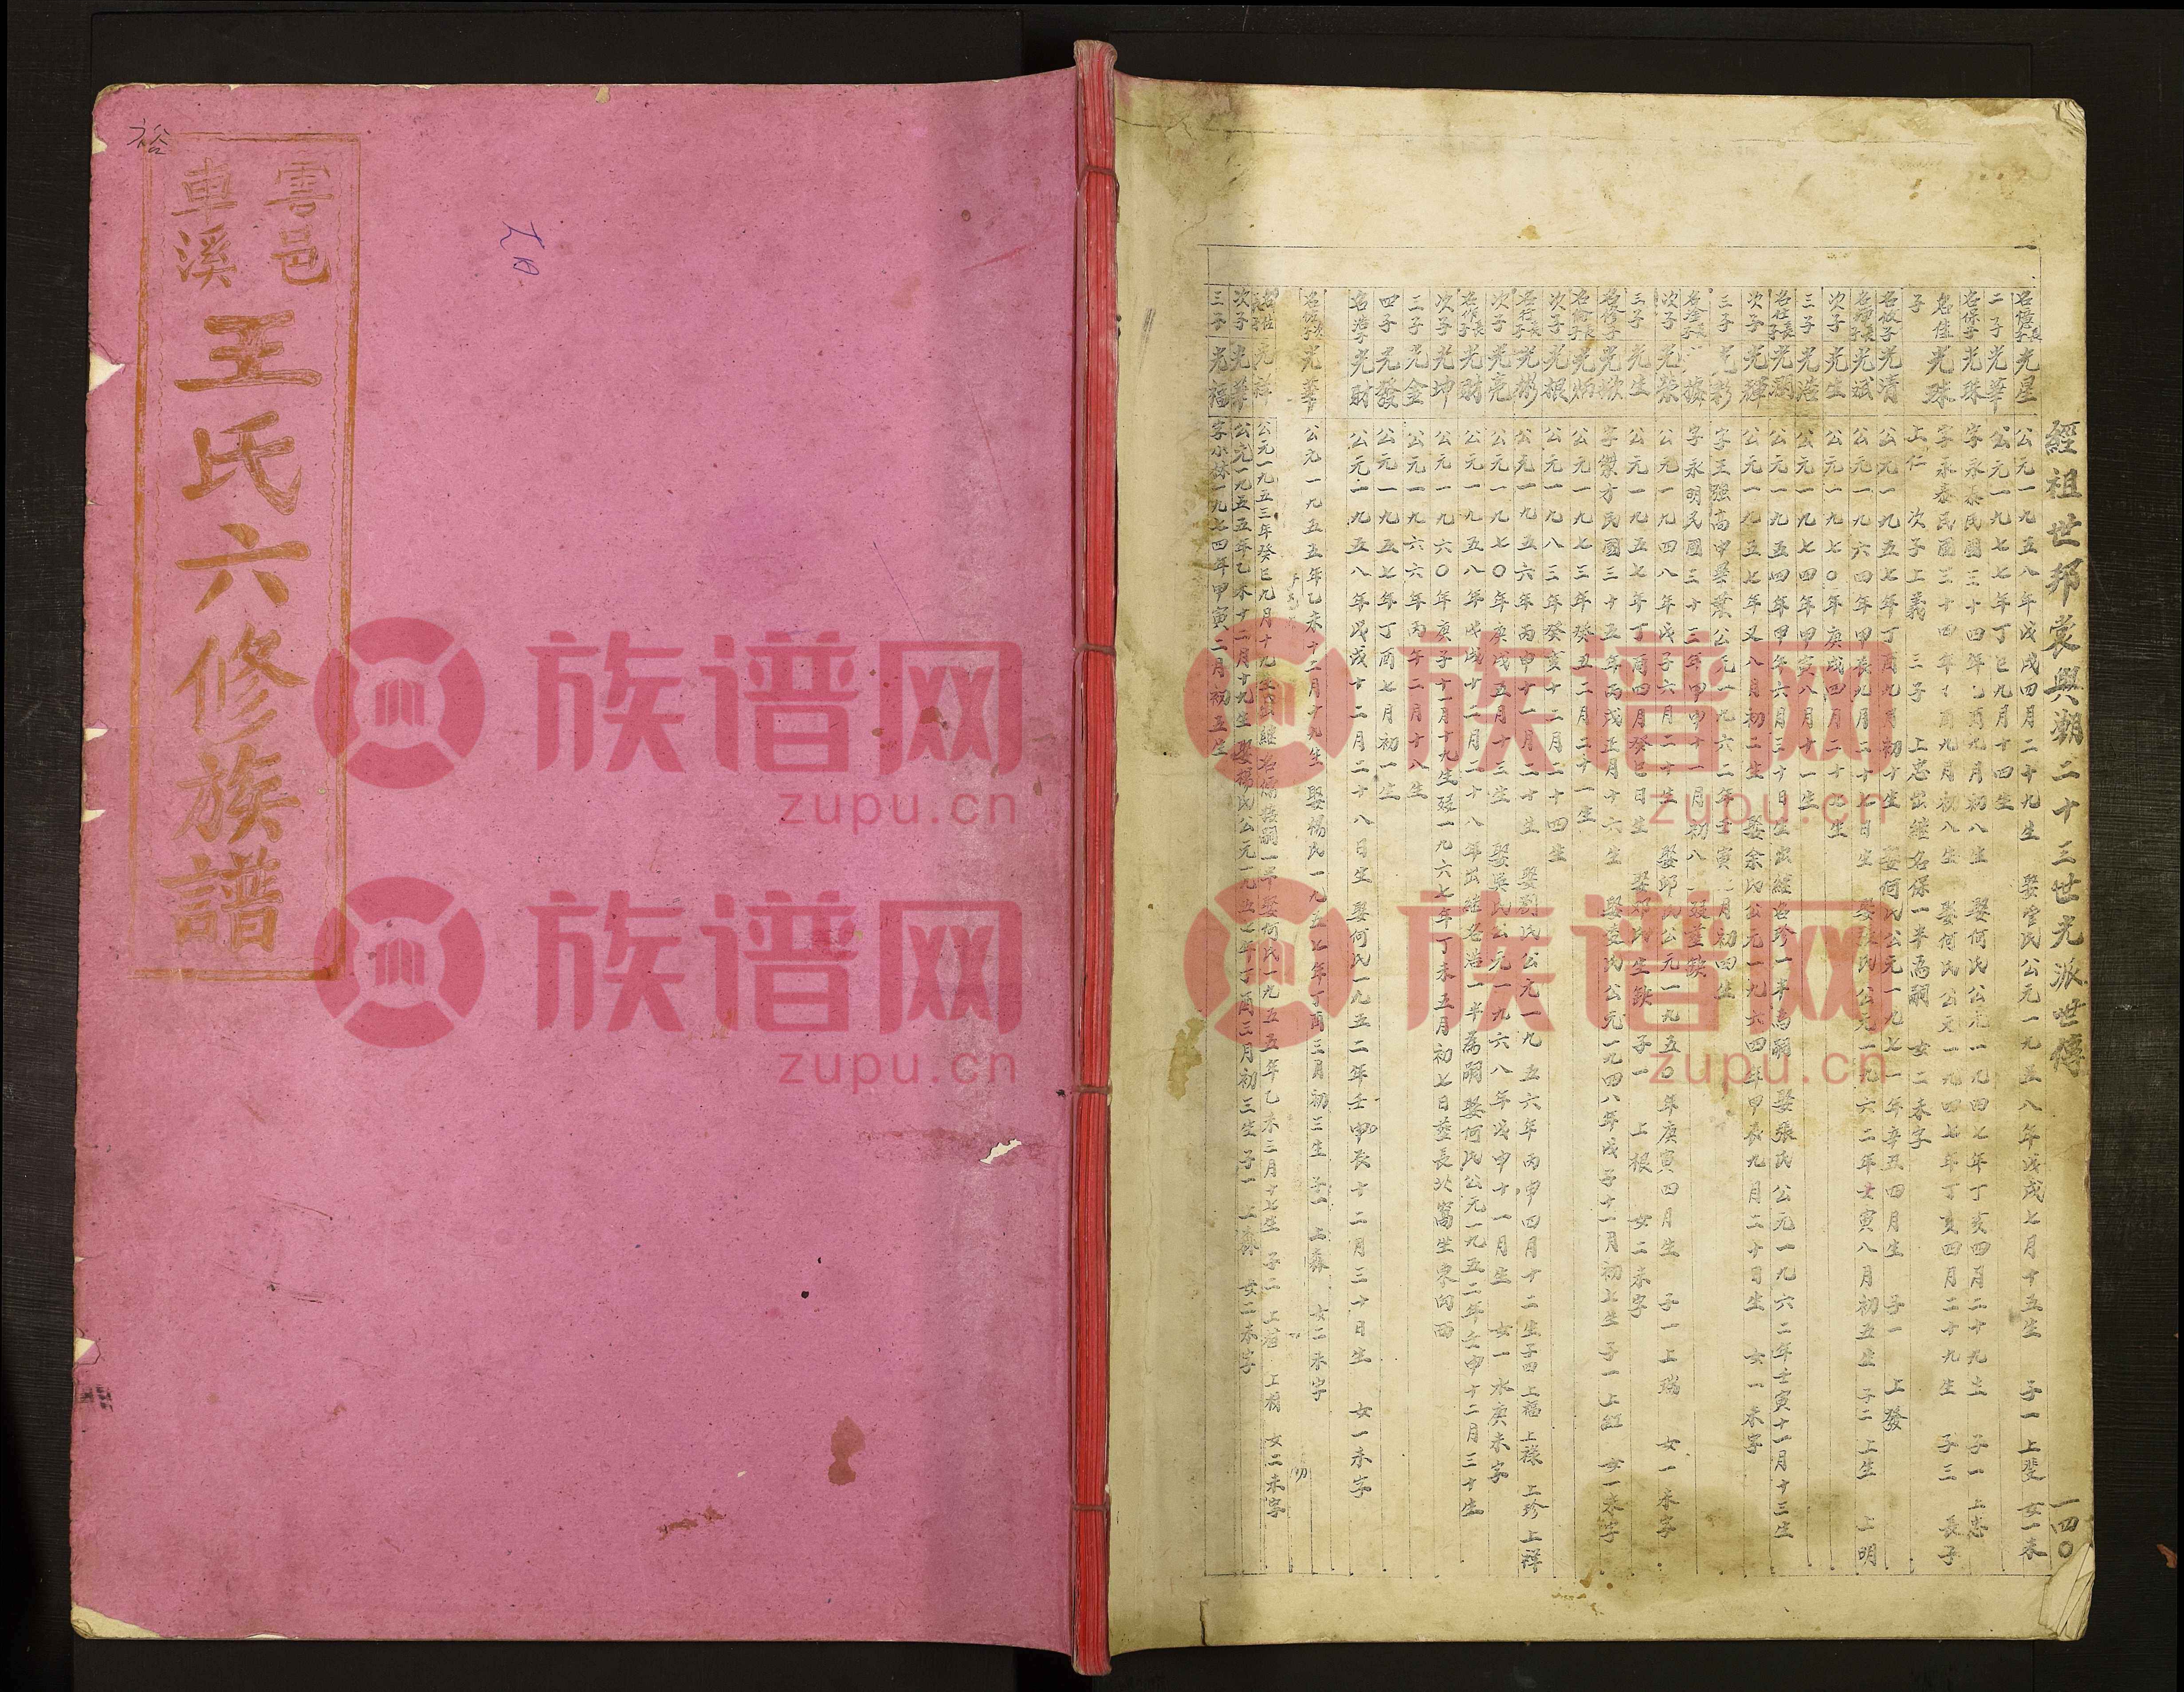 雩邑
車溪
王氏六修族譜
裕
經祖世邦裳興潮二十三世光派世傳 一四〇
光星 公元一九五八年戊戌四月二十九生 娶管氏公元一九五八年戊戌七月十五生 子一上斐 女一未
二子 光華 公元一九七七年丁巳九月十四生
名保子 光珠 字永泰民國三十四年乙酉九月初八生 娶何氏公元一九四七年丁亥四月二十九生 子一 上忠
名佳 光珠 字永泰民國三十四年乙酉九月初八生 娶何氏公元一九四七年丁亥四月二十九生 子三 長子
子 上仁 次子上義 三子 上忠出繼名保一半為嗣 女二未字
光清 公元一九五七年丁酉九月初十生 娶何氏公元一九七一年辛丑四月生 子一 上發
光斌 公元一九六四年甲辰九月二十七日生 娶張氏公元一九六二年壬寅八月初五生 子二 上生 上明
次子 光生 公元一九七〇年庚戌四月二十四生
三子 光浩 公元一九七四年甲寅八月十一生
光嗣 公元一九五四年甲午六月三十日生出繼名珍一半為嗣 娶張氏公元一九六二年壬寅十一月十三生
次子 光輝 公元一九五七年又八月初二生 娶余氏公元一九六四年甲辰九月二十日生 女一未字
三子 光彩 字王強高中畢業公元一九六二年壬寅二月初四生
字永明民國三十三年甲申十一月初八 歿葬缺
次子 光榮 公元一九四八年戊子六月二十生 娶邱氏公元一九五〇年庚寅四月生 子一上瑞 女一未字
三子 光生 公元一九五七年丁酉四月癸巳日生 娶邱氏生缺 子一 上根 女二未字
名俊子 光燉 字製方民國三十五年丙戌正月十六生 娶凌氏公元一九四八年戊子十一月初七生子一上紅 女一未字
光炳 公元一九七三年癸丑二月二十一生
次子 光根 公元一九八三年癸亥十二月二十四生
光彬 公元一九五六年丙申十一月二十生 娶劉氏公元一九五六年丙申四月十二生子四上福上祿上珍上祥
次子 光亮 公元一九七〇年庚戌五月十三生 娶吳氏公元一九六八年戊申十一月生 女一水庚未字
光財 公元一九五八年戊戌十二月二十八年出繼名浩一半為嗣娶何氏公元一九五二年壬申十二月三十生
次子 光坤 公元一九六〇年庚子十一月十九生歿一九六七年丁未五月初七日葬長北窩坐東向西
三子 光金 公元一九六六年丙午二月十八生
四子 光發 公元一九五七年丁酉七月初一生
名浩子 光財 公元一九五八年戊戌十二月二十八日生 娶何氏一九五二年壬申辰十二月三十日生 女一未字
光華 公元一九五五年乙未十二月十九生 娶楊氏一九五七年丁酉三月初三生 子一 上森 女二未字
光祥 公元一九五三年癸巳九月十九生出繼名傳 嗣一半娶何氏一九五五年乙未三月十七生 子二 上 上 女二未字
次子 光華 公元一九五五年乙未十二月十九生 娶楊氏公元一九五七年丁酉三月初三生子一 上森 女二未字
三子 光福 字小林一九七四年甲寅二月初五生
族谱网
zupu.cn
族谱网
zupu.cn
族谱网
zupu.cn
族谱网
zupu.cn